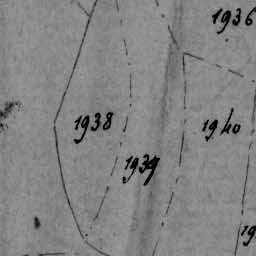 1936
1938
1940
1939
19